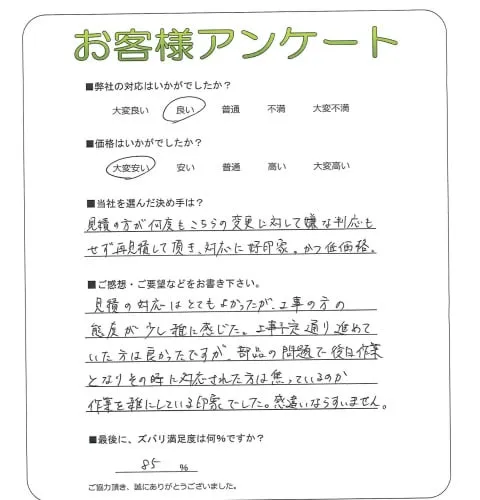 お客様アンケート
■弊社の対応はいかがでしたか?
大変良い 良い 普通 不満 大変不満
■価格はいかがでしたか?
大変安い 安い 普通 高い 大変高い
■当社を選んだ決め手は?
見積の方が何度もこちらの変更に対して嫌な判応も
せず再見積して頂き、対応に好印象。かつ低価格。
■ご感想・ご要望などをお書き下さい。
見積の対応はとてもよかったが、工事の方の
態度が少し雑に感じた。工事予定通り進めて
いた方は良かったですが、部品の問題で後日作業
となりその時に対応された方は焦っているのか
作業を雑にしている印象でした。感違いならすいません。
■最後に、ズバリ満足度は何%ですか?
85 %
ご協力頂き、誠にありがとうございました。